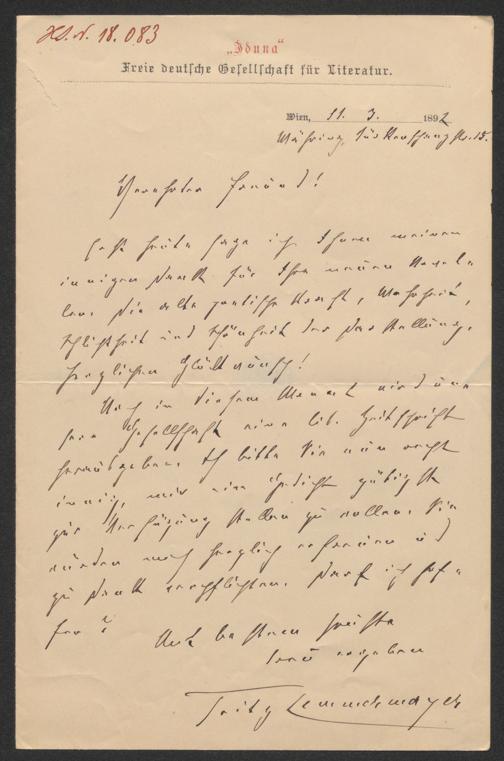 H.I.N. 18.083
„Iduna“
Freie deutsche Gesellschaft für Literatur.
Wien, 11. 3. 1892
Währing, Türkenschanzstr. 15.
Verehrter Freund!
Erst heute sage ich Ihnen meinen
innigen Dank für Ihre neuen Novel-
len. Die alte poetische Kraft, Wahrheit,
Schlichtheit und Schönheit der Darstellung.
Herzlichen Glückwunsch!
Noch in diesem Monat wird un-
sere Gesellschaft eine lit. Zeitschrift
herausgeben. Ich bitte Sie nun recht
innig, mir ein Gedicht gütigst
zur Verfügung stellen zu wollen. Sie
würden mich herzlich erfreuen und
zu Dank verpflichten. Darf ich hof-
fen?
Mit bestem Gruße
treu ergeben
Fritz Lemmermayer